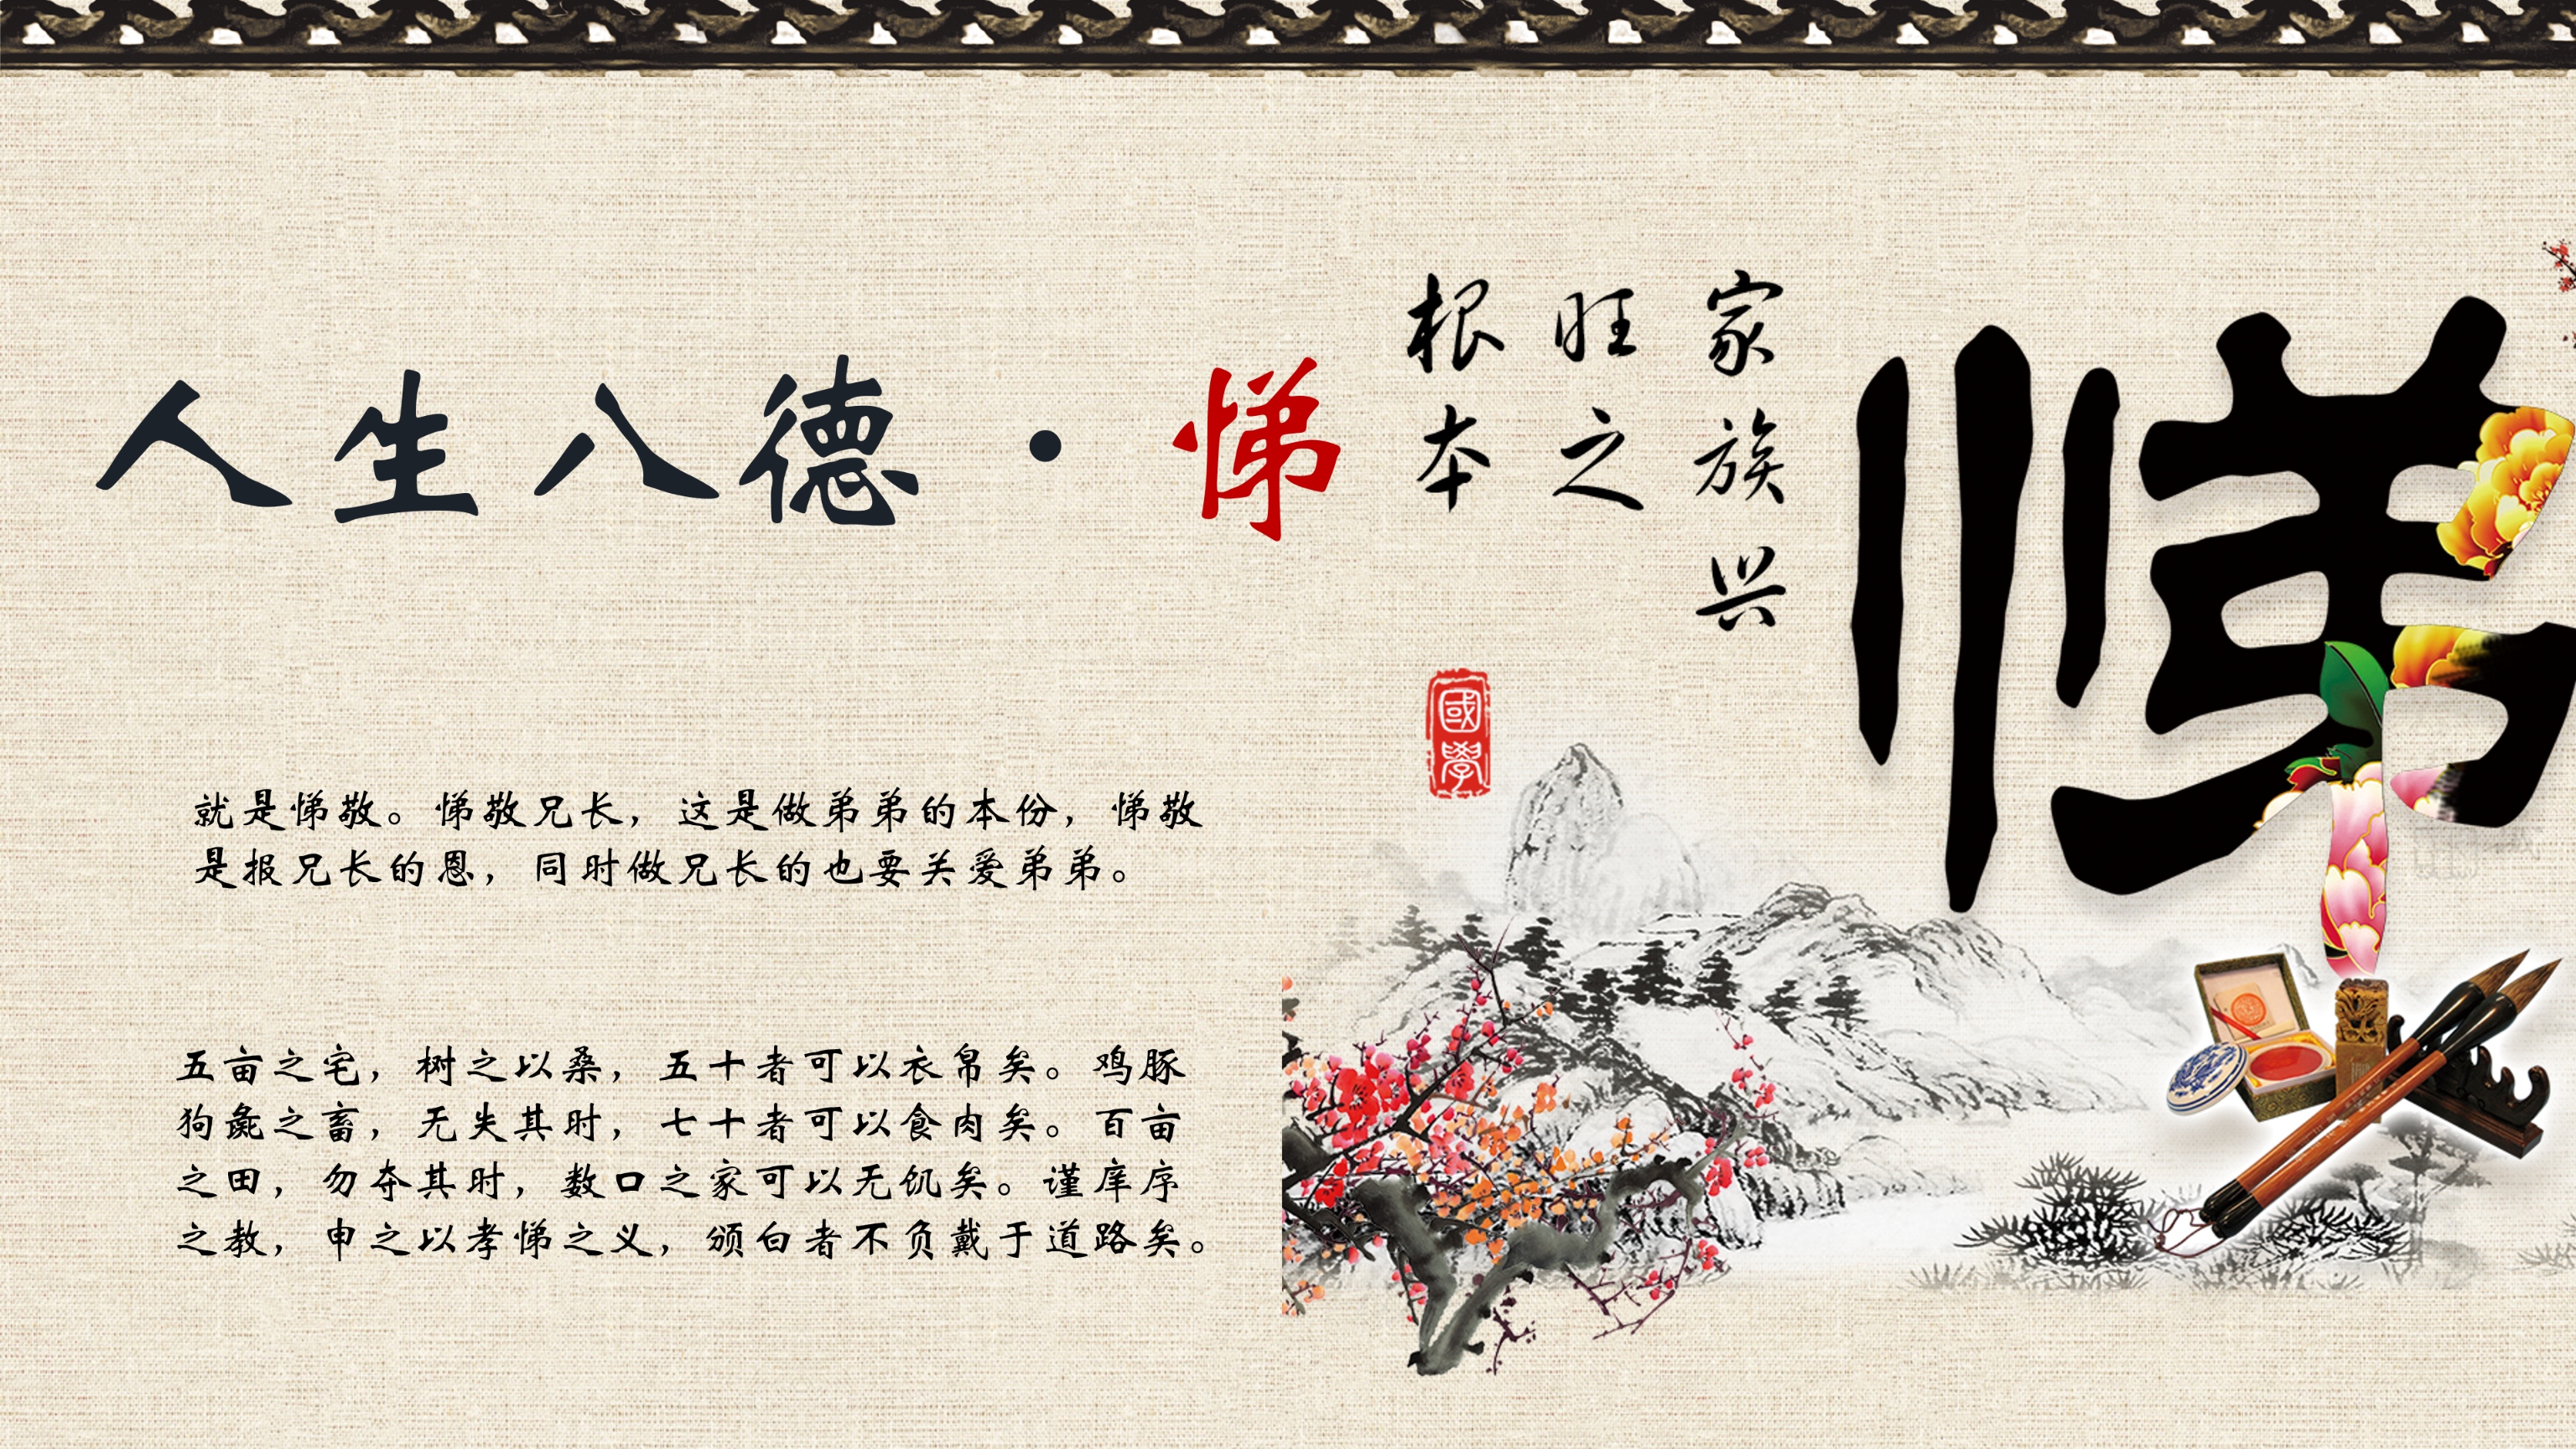 人生八德·悌
家族兴
旺之
根本
悌
國學
就是悌敬。悌敬兄长，这是做弟弟的本份，悌敬
是报兄长的恩，同时做兄长的也要关爱弟弟。
五亩之宅，树之以桑，五十者可以衣帛矣。鸡豚
狗彘之畜，无失其时，七十者可以食肉矣。百亩
之田，勿夺其时，数口之家可以无饥矣。谨庠序
之教，申之以孝悌之义，颁白者不负戴于道路矣。